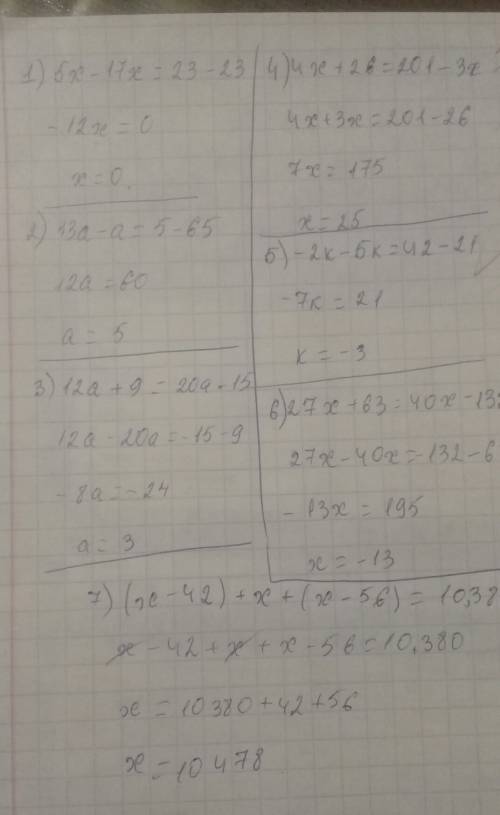 1) 5x - 17x = 23 - 23
- 12x = 0
x = 0.
2) 13a - a = 5 - 65
12a = 60
a = 5
3) 12a + 9 = 20a - 15
12a - 20a = -15 - 9
- 8a = - 24
a = 3
4) 4x + 26 = 201 - 3x
4x + 3x = 201 - 26
7x = 175
x = 25
5) - 2к - 5к = 42 - 21
- 7к = 21
к = - 3
6) 27x + 63 = 40x - 132
27x - 40x = -132 - 6
- 13x = 195
x = - 13
7) (x - 42) + x + (x - 56) = 10,38
x - 42 + x + x - 56 = 10,380
x = 10380 + 42 + 56
x = 10478